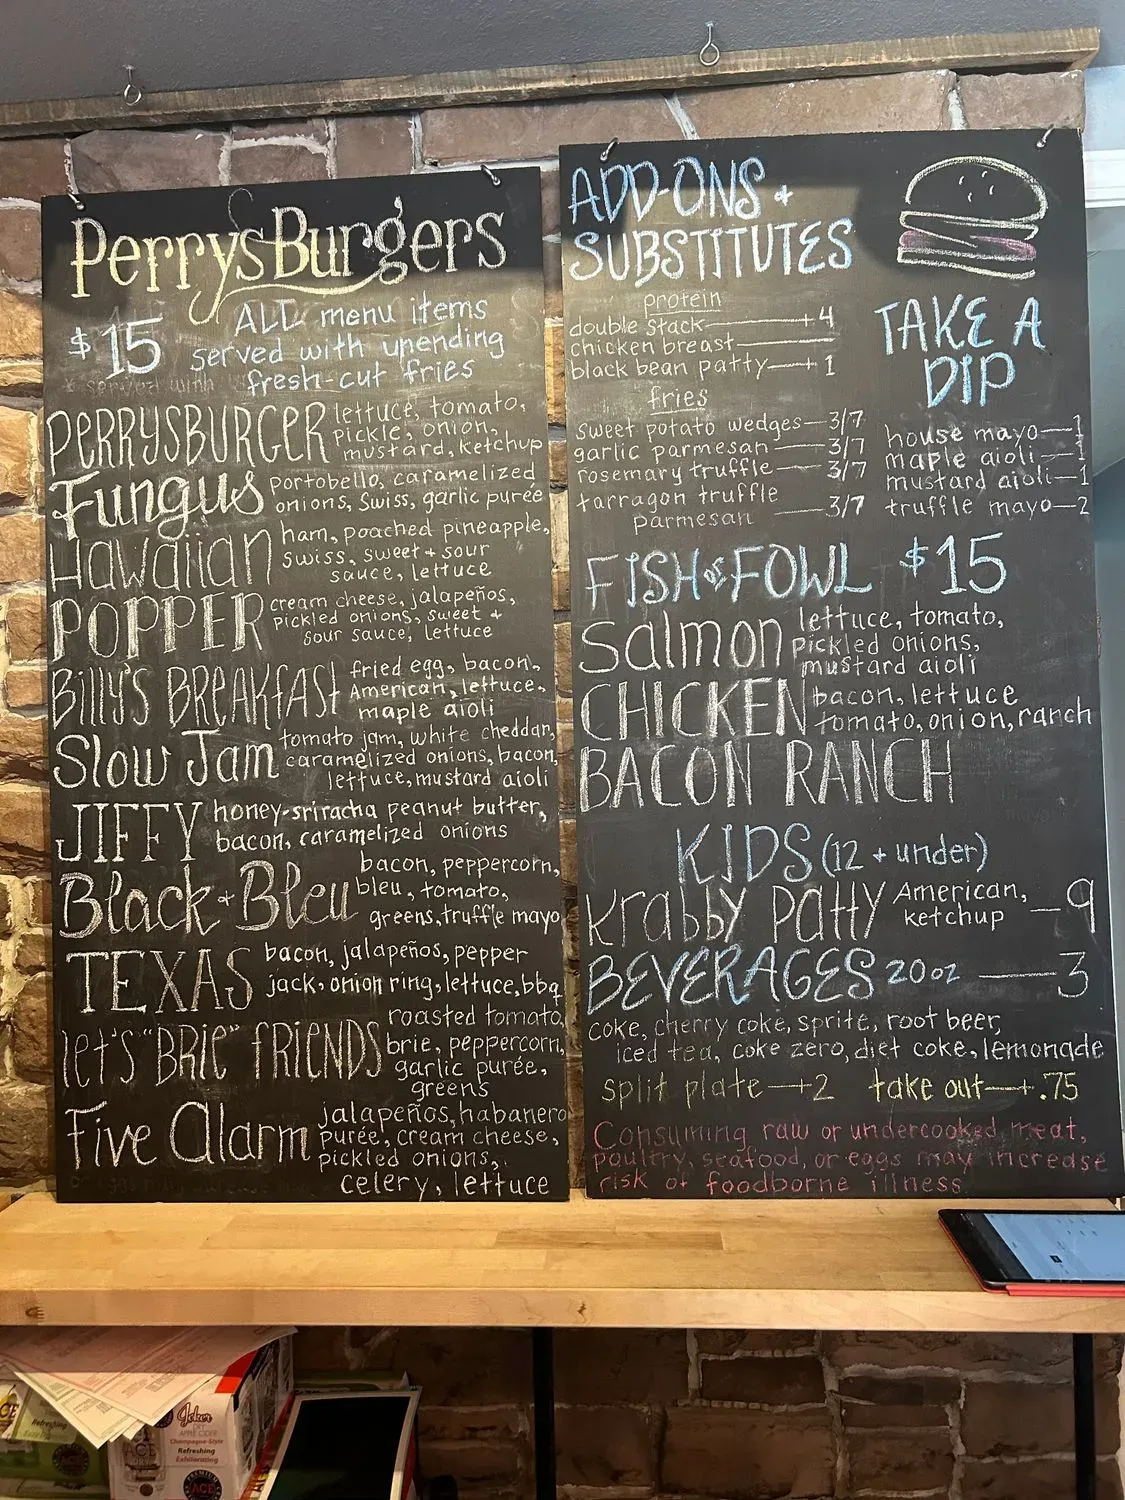 PerrysBurgers
$15
ALL menu items
served with unending
fresh-cut fries
* served with
PERRYSBURGER
lettuce, tomato,
pickle, onion,
mustard, ketchup
Fungus
portobello, caramelized
onions, swiss, garlic purée
Hawaiian
ham, poached pineapple,
swiss, sweet + sour
sauce, lettuce
POPPER
cream cheese, jalapeños,
pickled onions, sweet +
sour sauce, lettuce
BILLY'S BREAKFAST
fried egg, bacon,
American, lettuce,
maple aioli
Slow Jam
tomato jam, white cheddar,
caramelized onions, bacon,
lettuce, mustard aioli
JIFFY
honey-sriracha peanut butter,
bacon, caramelized onions
Black + Bleu
bacon, peppercorn,
bleu, tomato,
greens, truffle mayo
TEXAS
bacon, jalapeños, pepper
jack, onion ring, lettuce, bbq
let's "BRIE" FRIENDS
roasted tomato,
brie, peppercorn,
garlic purée,
greens
Five Alarm
jalapeños, habanero
purée, cream cheese,
pickled onions,
celery, lettuce
ADD-ONS +
SUBSTITUTES
protein
double stack—+4
chicken breast—
black bean patty—+1
fries
sweet potato wedges—3/7
garlic parmesan—3/7
rosemary truffle—3/7
tarragon truffle
parmesan —3/7
TAKE A
DIP
house mayo—1
maple aioli—1
mustard aioli—1
truffle mayo—2
FISH or FOWL $15
Salmon
lettuce, tomato,
pickled onions,
mustard aioli
CHICKEN
BACON RANCH
bacon, lettuce
tomato, onion, ranch
KIDS (12 + under)
Krabby Patty
American,
ketchup —9
BEVERAGES 20oz —3
coke, cherry coke, sprite, root beer,
iced tea, coke zero, diet coke, lemonade
split plate—+2 take out—+.75
Consuming raw or undercooked meat,
poultry, seafood, or eggs may increase
risk of foodborne illness
Refreshing
Joker
DRY
APPLE CIDER
Champagne-Style
Refreshing
Exhilarating
ACE